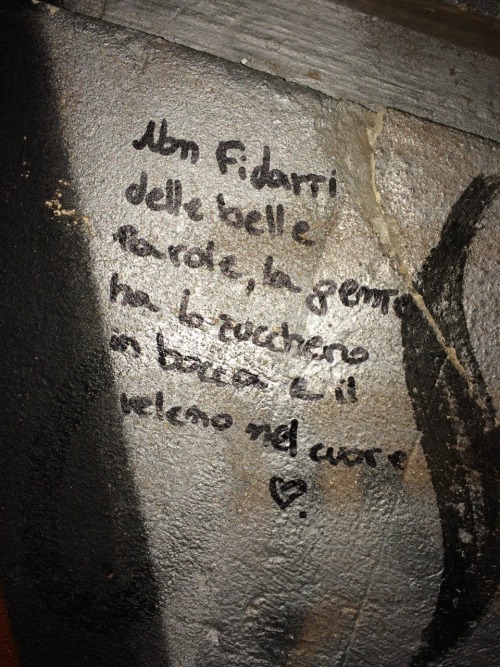 Non Fidarti
delle belle
Parole, la gente
ha lo zucchero
in bocca e il
veleno nel cuore
♡.